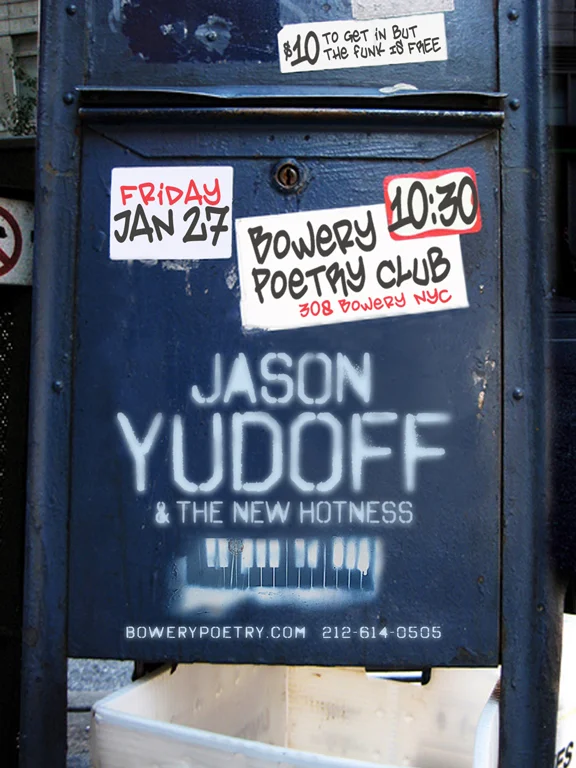 $10 TO GET IN BUT
THE FUNK IS FREE
FRIDAY
JAN 27
10:30
BOWERY
POETRY CLUB
308 BOWERY NYC
JASON
YUDOFF
& THE NEW HOTNESS
BOWERYPOETRY.COM 212-614-0505